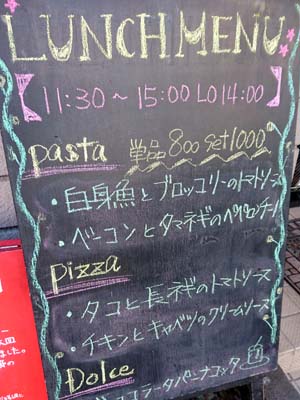 LUNCH MENU
【11:30～15:00 LO14:00】
pasta 単品800 set1000
・白身魚とブロッコリーのトマトソース
・ベーコンとタマネギのペペロンチーノ
pizza
・タコと長ネギのトマトソース
・チキンとキャベツのクリームソース
Dolce
ショコラータパンナコッタ